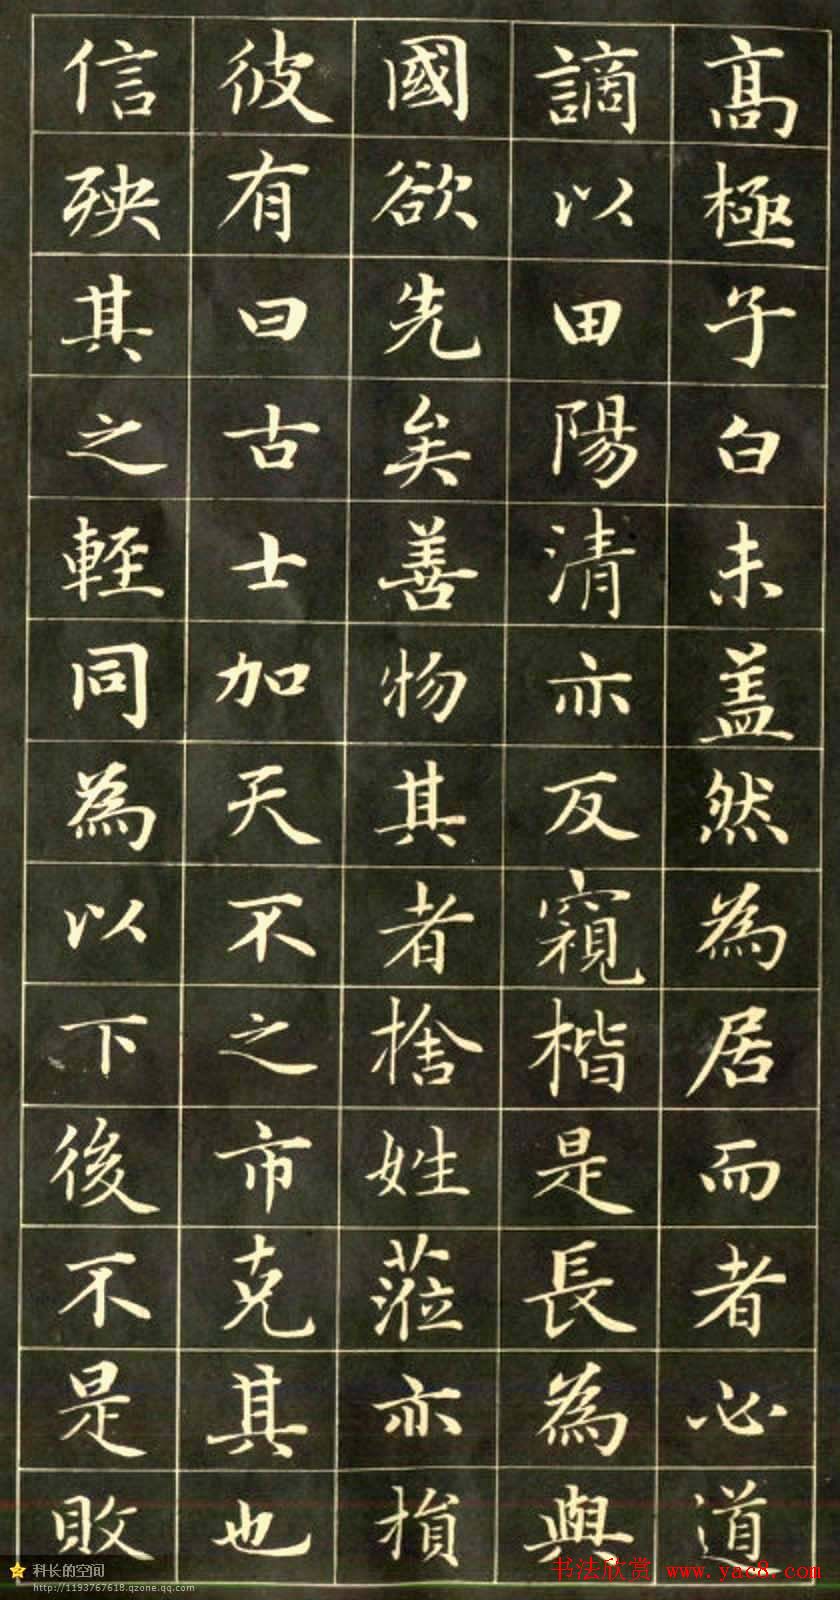 髙極子白未盖然為居而者心道
謫以田陽清亦反窺楷是長為與
國欲先矣善物其者捨姓蒞亦損
彼有曰古士加天不之市克其也
信殃其之輕同為以下後不是敗
科长的空间
http://1193767618.qzone.qq.com
书法欣赏 www.yac8.com